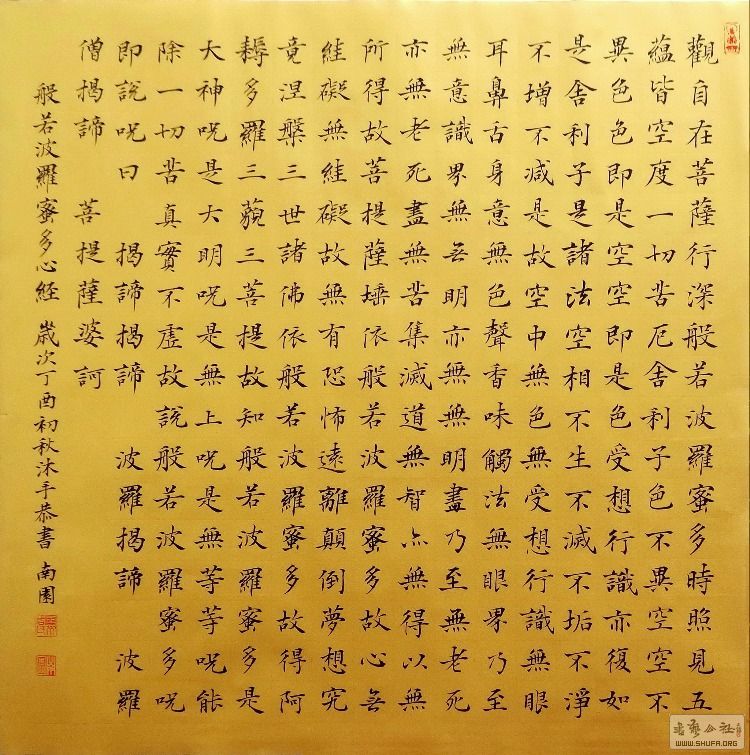 觀自在菩薩行深般若波羅蜜多時照見五
蘊皆空度一切苦厄舍利子色不異空空不
異色色即是空空即是色受想行識亦復如
是舍利子是諸法空相不生不滅不垢不淨
不增不減是故空中無色無受想行識無眼
耳鼻舌身意無色聲香味觸法無眼界乃至
無意識界無无明亦無無明盡乃至無老死
亦無老死盡無苦集滅道無智亦無得以無
所得故菩提薩埵依般若波羅蜜多故心无
絓礙無絓礙故無有恐怖遠離顛倒夢想究
竟涅槃三世諸佛依般若波羅蜜多故得阿
耨多羅三藐三菩提故知般若波羅蜜多是
大神呪是大明呪是無上呪是無等等呪能
除一切苦真實不虛故說般若波羅蜜多呪
即說呪曰 揭諦揭諦 波羅揭諦 波羅
僧揭諦 菩提薩婆訶
般若波羅蜜多心經 歲次丁酉初秋沐手恭書 南園
書藝公社
WWW.SHUFA.ORG